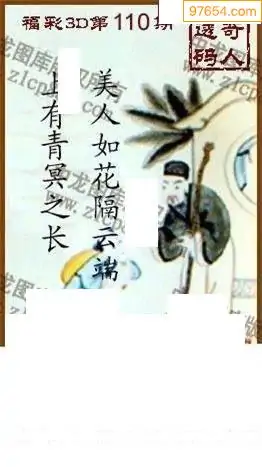 福彩3D第110期
97654.com
奇人
透码
美人如花隔云端
上有青冥之长